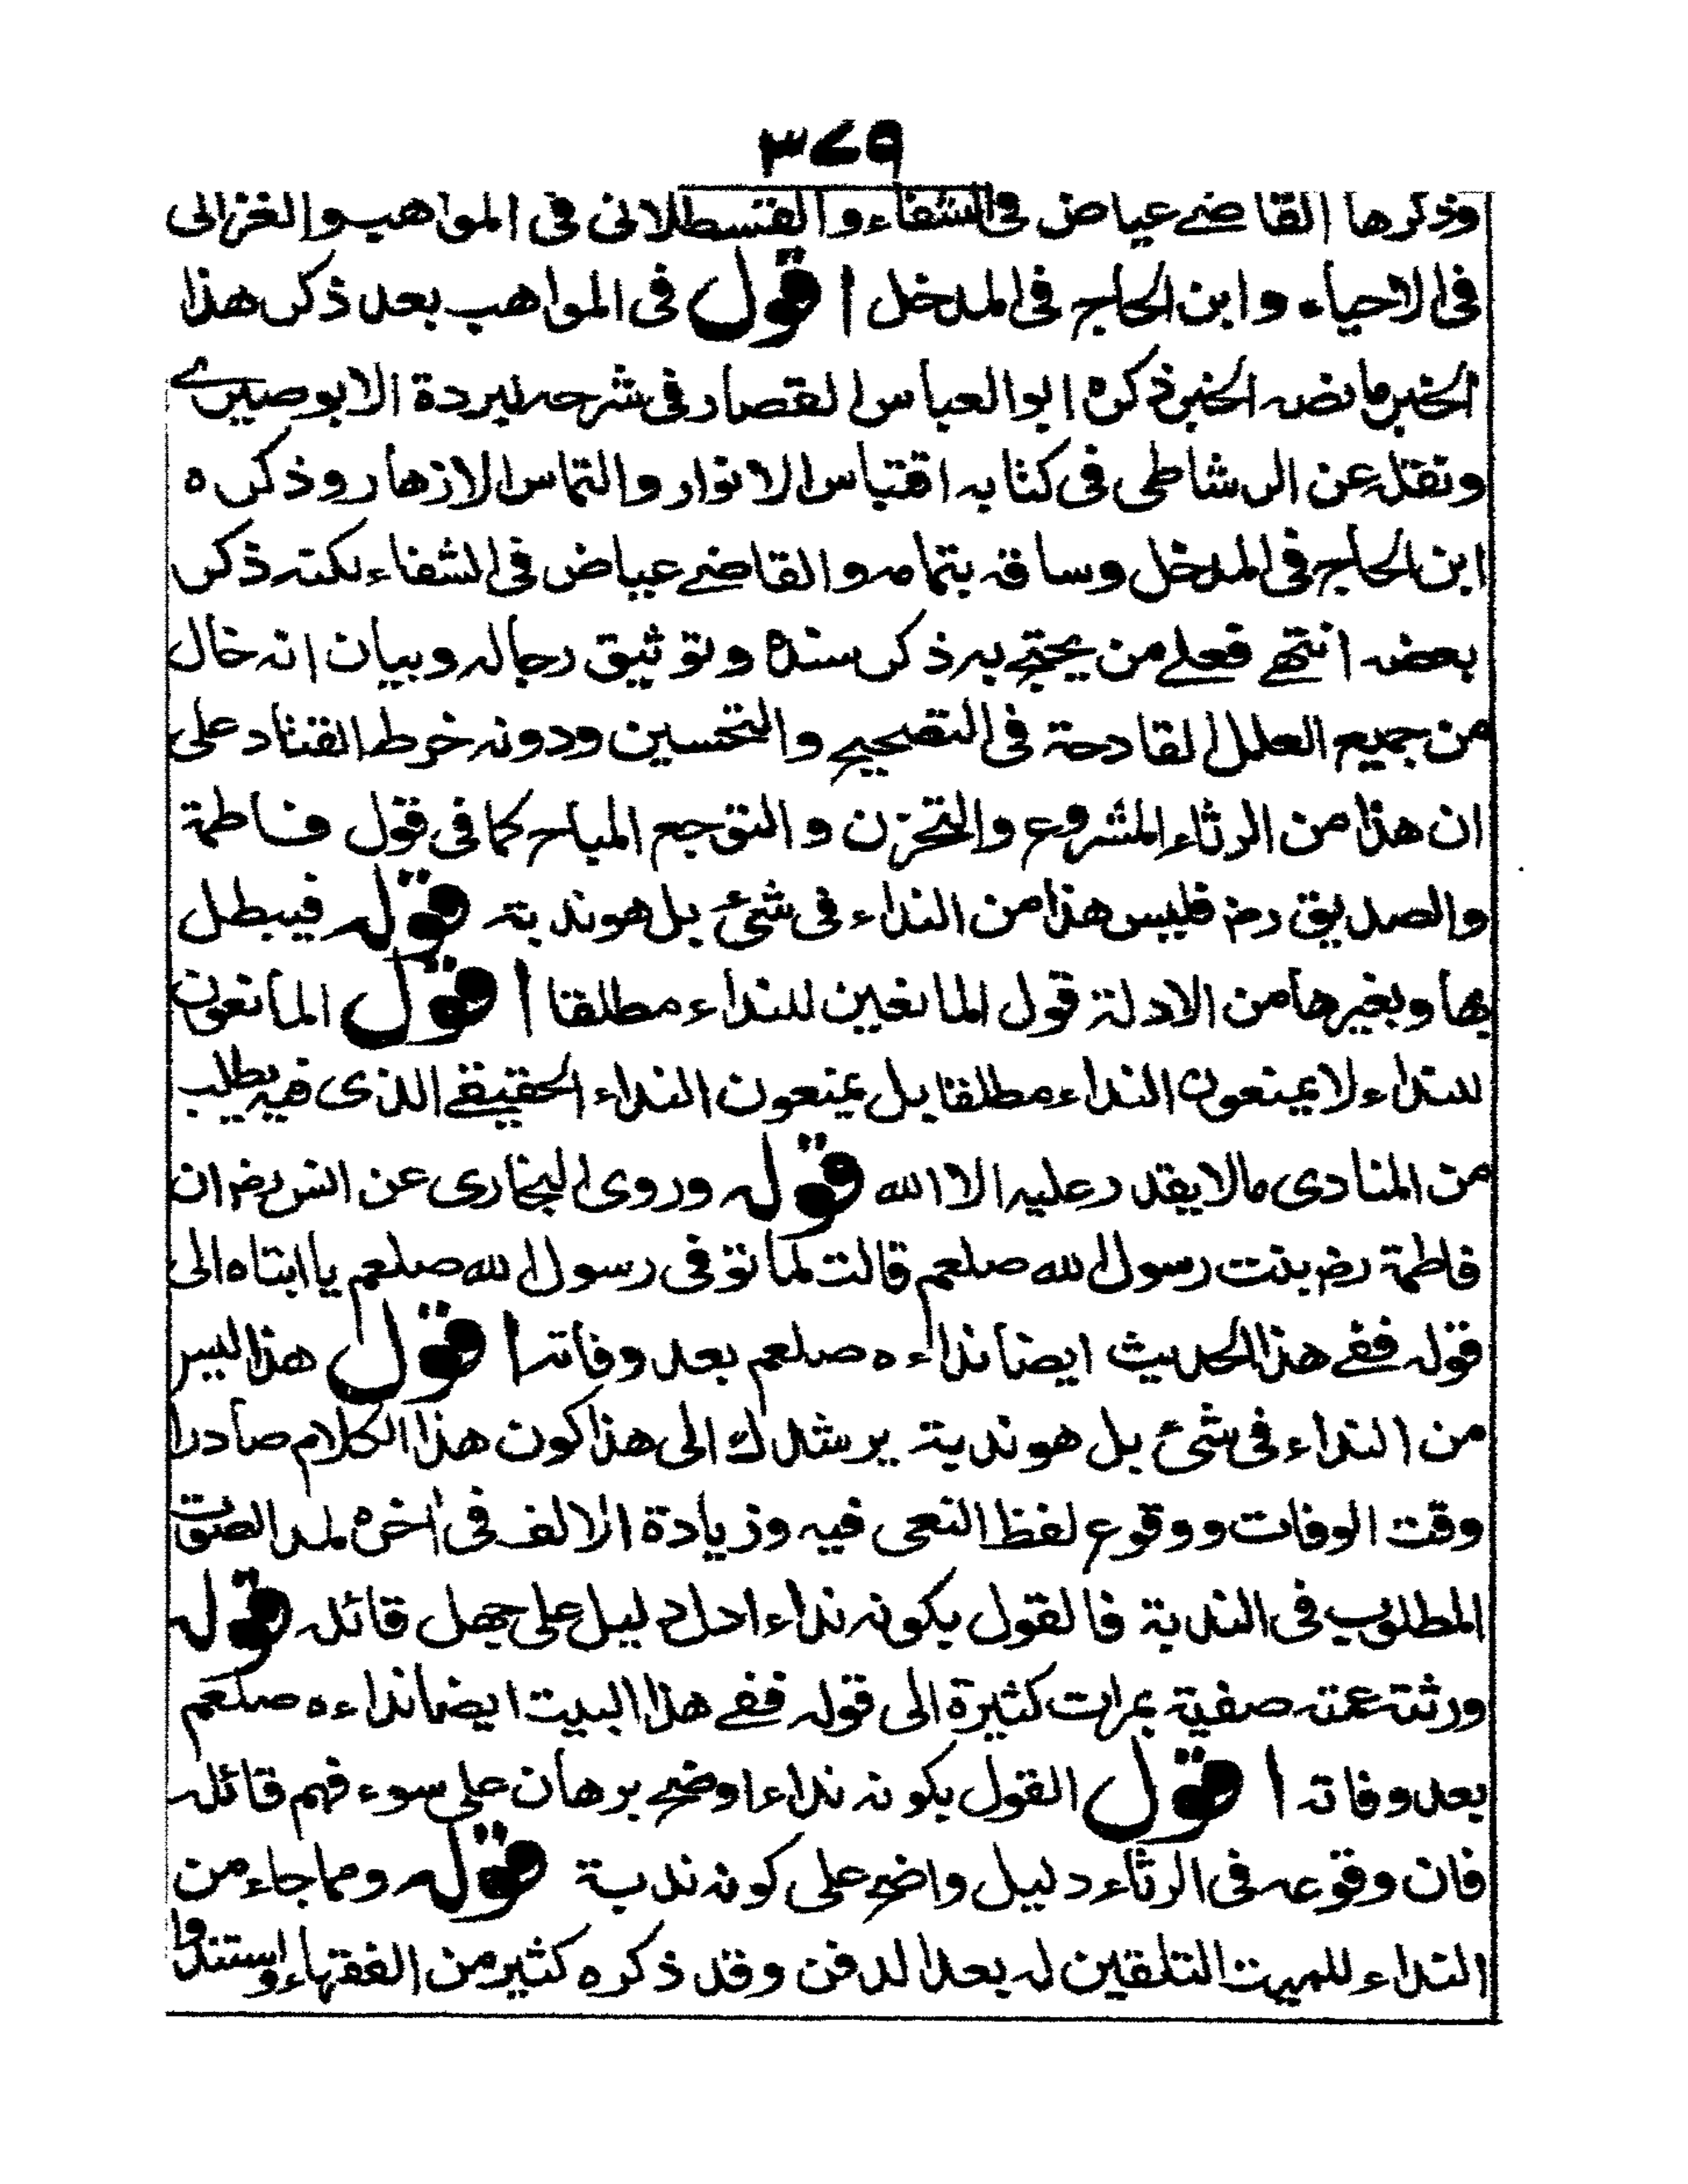 ٣٧٩
وذكرها القاضے عياض فى الشفاء والقسطلانى فى المواهب والغزالى
فى الاحياء وابن الحاج فى المدخل اقول فى المواهب بعد ذكر هذا
الخبر مانصه الخبر ذكره ابوالعباس القصار فى شرحه لبردة الابوصيرے
ونقله عن الرشاطى فى كتابه اقتباس الانوار والتماس الازهار وذكره
ابن الحاج فى المدخل وساقه بتمامه والقاضے عياض فى الشفاء لكنه ذكر
بعضه انتهے فعلے من يحتج به ذكر سنده وتوثيق رجاله وبيان انه خال
من جميع العلل القادحة فى التصحيح والتحسين ودونه خرط القتاد على
ان هذا من الرثاء المشروع والتحزن والتوجع المباح كما فى قول فاطمة
والصديق رض فليس هذا من النداء فى شئ بل هو ندبة قوله فيبطل
بها وبغيرها من الادلة قول المانعين للنداء مطلقا اقول المانعون
للنداء لا يمنعون النداء مطلقا بل يمنعون النداء الحقيقے الذى فيه يطلب
من المنادى مالا يقدر عليه الا الله قوله وروى البخارى عن انس رض ان
فاطمة رض بنت رسول الله صلعم قالت لما توفى رسول الله صلعم يا ابتاه الى
قوله ففے هذا الحديث ايضا نداءه صلعم بعد وفاته اقول هذا ليس
من النداء فى شئ بل هو ندبة يرشدك الى هذا كون هذا الكلام صادرا
وقت الوفات ووقوع لفظ النعى فيه وزيادة الالف فى اخره لمد الصوت
المطلوب فى الندبة فالقول بكونه نداء ادل دليل على جهل قائله قوله
ورثته عمته صفية بمرات كثيرة الى قوله ففے هذا البيت ايضا نداءه صلعم
بعد وفاته اقول القول بكونه نداء اوضح برهان على سوء فهم قائله
فان وقوعه فى الرثاء دليل واضح على كونه ندبة قوله ومما جاء من
النداء للميت التلقين له بعد الدفن وقد ذكره كثير من الفقهاء واستندوا